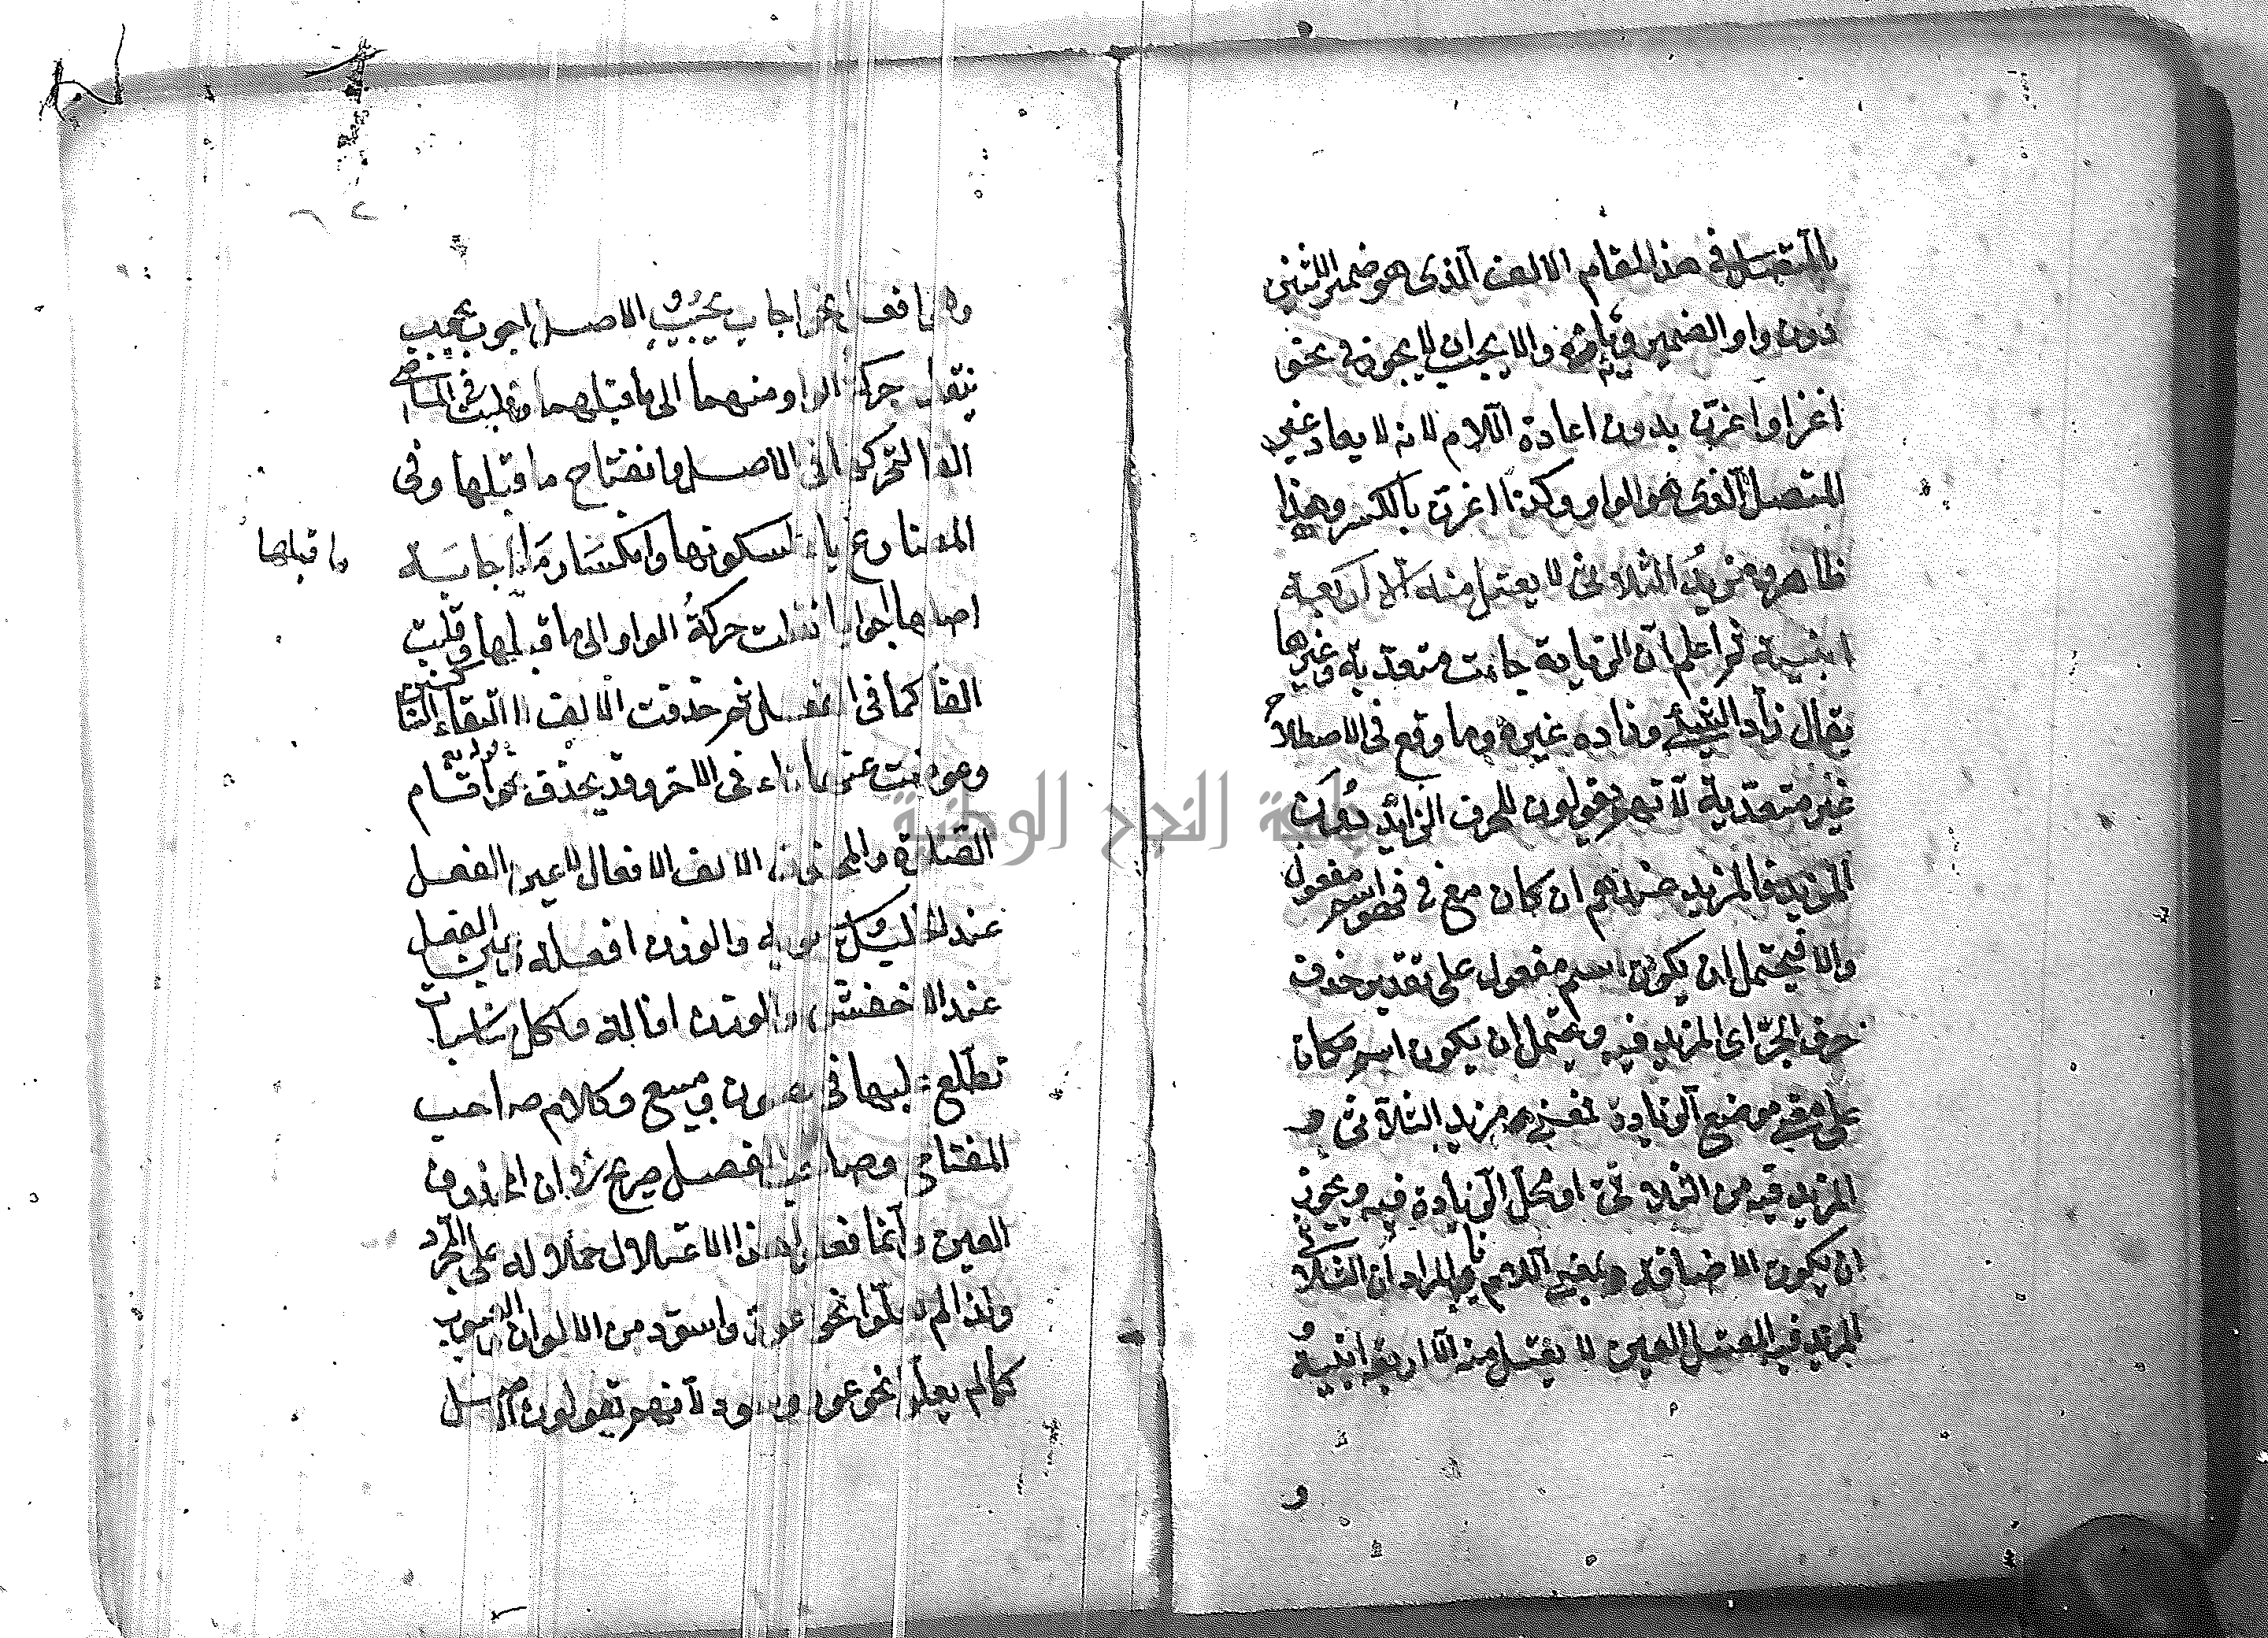 بالمتصل في هذا المقام الالف الذي هو ضمير الاثنين
دون واو الضمير ويائه والا يجب ان لا يجوز في نحو
اغزوا واغزن بدون اعادة اللام لانه لا يعاد عند
المتصل الذي هو الواو وكذا اغزن بالكسر وهذا
ظاهر ومزيد الثلاثي لا يعتل منه الا اربعة
ابنية ثم اعلم ان الزيادة جاءت متعدية وغيرها
يقال زاد الشيء وزاده غيره وما وقع في الاصطلاح
غير متعدية لانهم يقولون للحرف الزائد دون
المزيد فالمزيد عندهم ان كان مع في فهو اسم مفعول
والا فيحتمل ان يكون اسم مفعول على تقدير حذف
حرف الجر اي المزيد فيه ويحتمل ان يكون اسم مكان
على معنى موضع الزيادة فمعنى مزيد الثلاثي
المزيد فيه من الثلاثي او محل الزيادة فيه ويجوز
ان يكون الاضافة بمعنى اللام والمراد ان الثلاثي
المزيد فيه المعتل العين لا يعتل منه الا اربعة ابنية
و
وهي افعل نحو اجاب يجيب الاصل اجوب يجوب
نقلت حركة الواو منهما الى ما قبلهما وقلبت في الماضي
الفا لتحركها في الاصل وانفتاح ما قبلها وفي
المضارع ياء لسكونها وانكسار ما اجابة
ما قبلها
اصلها اجوابا نقلت حركة الواو الى ما قبلها وقلبت
الفا كما في الفعل ثم حذفت الالف لالتقاء الساكنين
وعوضت عنها تاء في الاخر وقد يحذف نحو اقام
الصلاة والمحذوف الالف الافعال لا عين الفعل
عند الخليل وسيبويه والوزن افعلة وعين الفعل
عند الاخفش والوزن افالة ولكل مناسبات
تطلع عليها في مصون ومبيع وكلام صاحب
المفتاح وصاحب المفصل صريح في ان المحذوف
العين وانما فعل هذا الاعتلال حملا له على المجرد
ولذا لم يعلوا نحو عور واسود من الالوان والعيوب
كما لم يعلوا نحو عور وسود لانهم يقولون الاصل
جامعة النجاح الوطنية